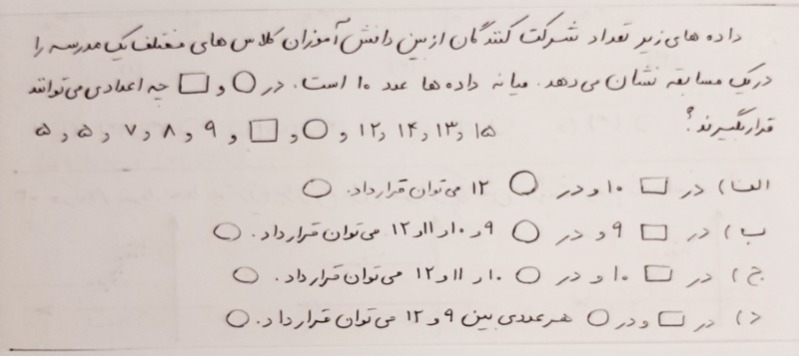 داده های زیر تعداد شرکت کنندگان از بین دانش آموزان کلاس های مختلف یک مدرسه را
در یک مسابقه نشان می دهد. میانه داده ها عدد ۱۰ است. در ○ و □ چه اعدادی می توانند
قرار بگیرند؟ ۵ و ۵ و ۷ و ۸ و ۹ و □ و ○ و ۱۲ و ۱۴ و ۱۳ و ۱۵
الف) در □ ۱۰ و در ○ ۱۲ می توان قرار داد. ○
ب) در □ ۹ و در ○ ۹ و ۱۰ و ۱۱ و ۱۲ می توان قرار داد. ○
ج) در □ ۱۰ و در ○ ۱۰ و ۱۱ و ۱۲ می توان قرار داد. ○
د) در □ و در ○ هر عددی بین ۹ و ۱۲ می توان قرار داد. ○